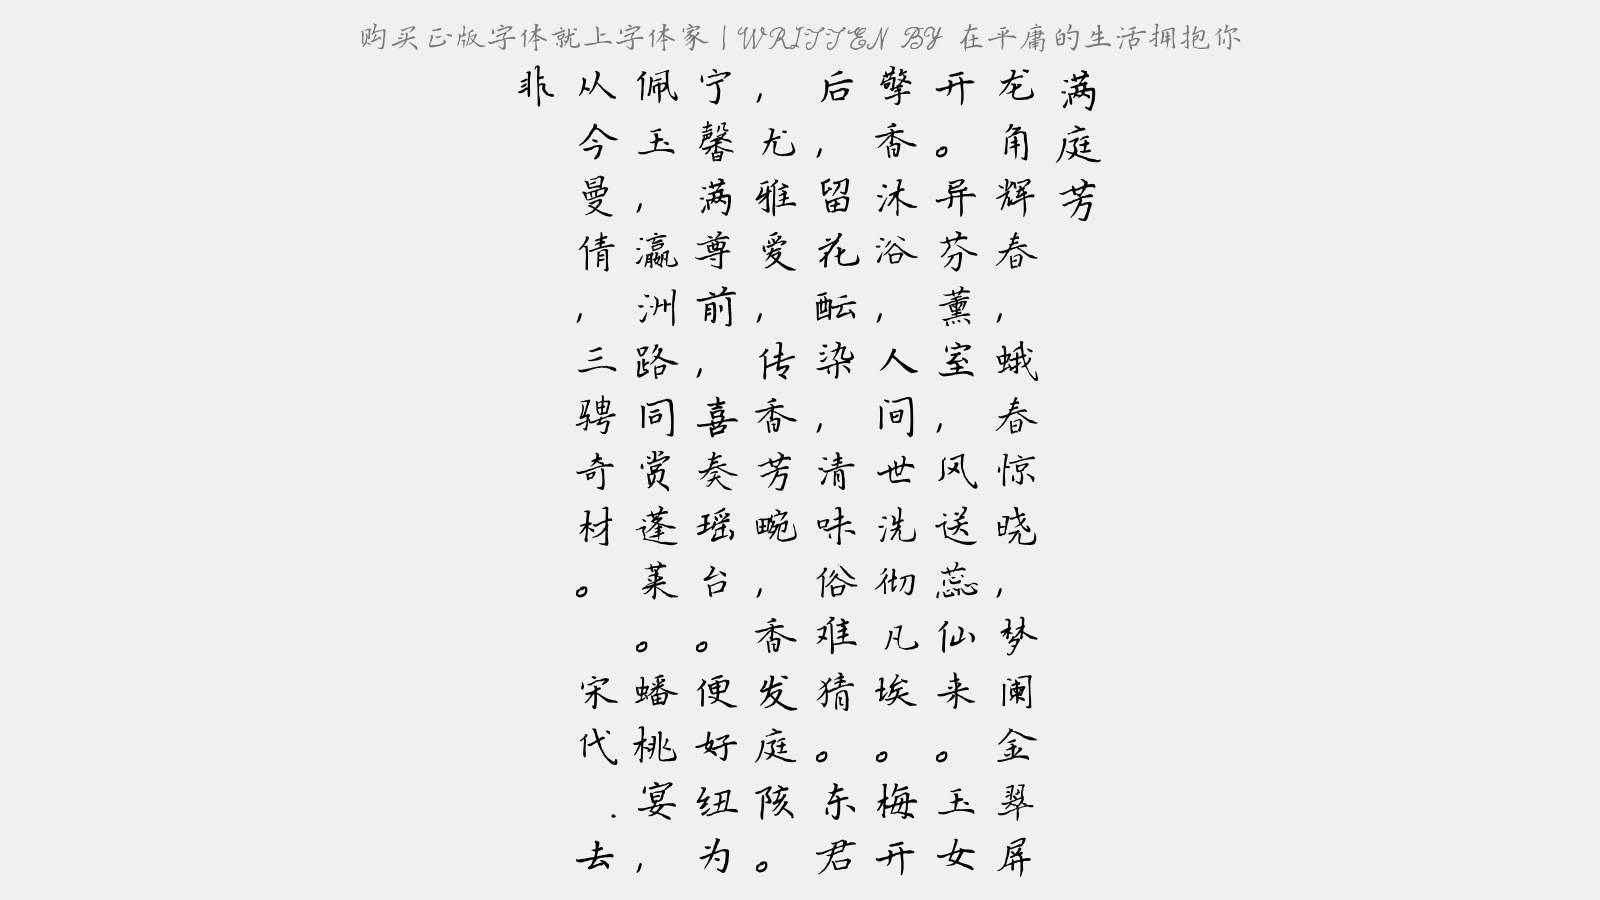 购买正版字体就上字体家 | WRITTEN BY 在平庸的生活拥抱你
满庭芳
龙角辉春，蛾春惊晓，梦阑金翠屏
开。异芬薰室，风送蕊仙来。玉女
擎香沐浴，人间世洗彻凡埃。梅开
后，留花酝染，清味俗难猜。东君
，尤雅爱，传香芳畹，香发庭陔。
宁馨满尊前，喜奏瑶台。便好纽为
佩玉，瀛洲路同赏蓬莱。蟠桃宴，
从今曼倩，三骋奇材。 宋代.去
非